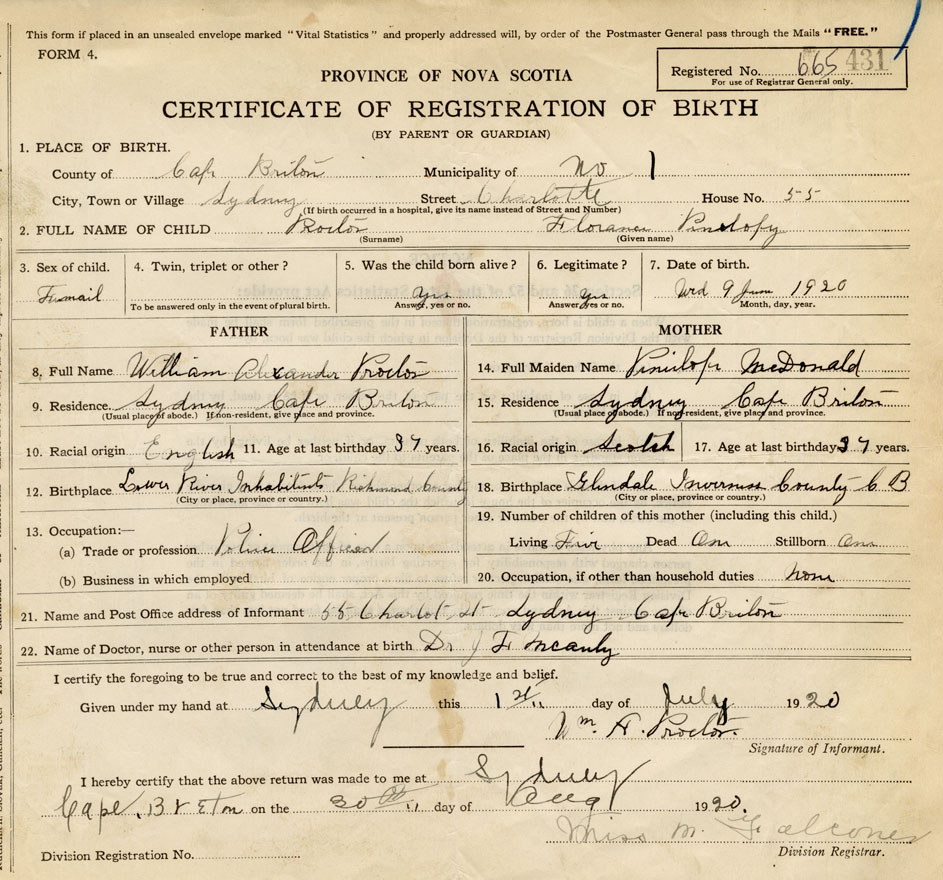 This form if placed in an unsealed envelope marked "Vital Statistics" and properly addressed will, by order of the Postmaster General pass through the Mails "FREE."
FORM 4.
Registered No. 665 431
For use of Registrar General only.
PROVINCE OF NOVA SCOTIA
CERTIFICATE OF REGISTRATION OF BIRTH
(BY PARENT OR GUARDIAN)
1. PLACE OF BIRTH.
County of Cape Briton Municipality of No 1
City, Town or Village Sydney Street Charlotte House No. 55
(If birth occurred in a hospital, give its name instead of Street and Number)
2. FULL NAME OF CHILD Proctor Florance Pinelopy
(Surname) (Given name)
3. Sex of child. 4. Twin, triplet or other? 5. Was the child born alive? 6. Legitimate? 7. Date of birth.
Femail Yes Yes Wed 9 June 1920
To be answered only in the event of plural birth. Answer, yes or no. Answer, yes or no. Month, day, year.
FATHER MOTHER
8. Full Name William Alexander Proctor 14. Full Maiden Name Pinilope McDonald
9. Residence Sydney Cape Briton 15. Residence Sydney Cape Briton
(Usual place of abode.) If non-resident, give place and province. (Usual place of abode.) If non-resident, give place and province.
10. Racial origin English 11. Age at last birthday 37 years. 16. Racial origin Scotch 17. Age at last birthday 37 years.
12. Birthplace Lower River Inhabitants Richmond County 18. Birthplace Glendale Inverness County C B
(City or place, province or country.) (City or place, province or country.)
13. Occupation:— 19. Number of children of this mother (including this child.)
(a) Trade or profession Police Officer Living Dead One Stillborn One
(b) Business in which employed 20. Occupation, if other than household duties None
21. Name and Post Office address of Informant 55 Charlot St Sydney Cape Briton
22. Name of Doctor, nurse or other person in attendance at birth Dr J F McAuly
I certify the foregoing to be true and correct to the best of my knowledge and belief.
Given under my hand at Sydney this 1st day of July 1920
Wm. A. Proctor.
Signature of Informant.
I hereby certify that the above return was made to me at Sydney
Cape Breton on the 30th day of Aug 1920.
Miss M. Falconer
Division Registration No. Division Registrar.